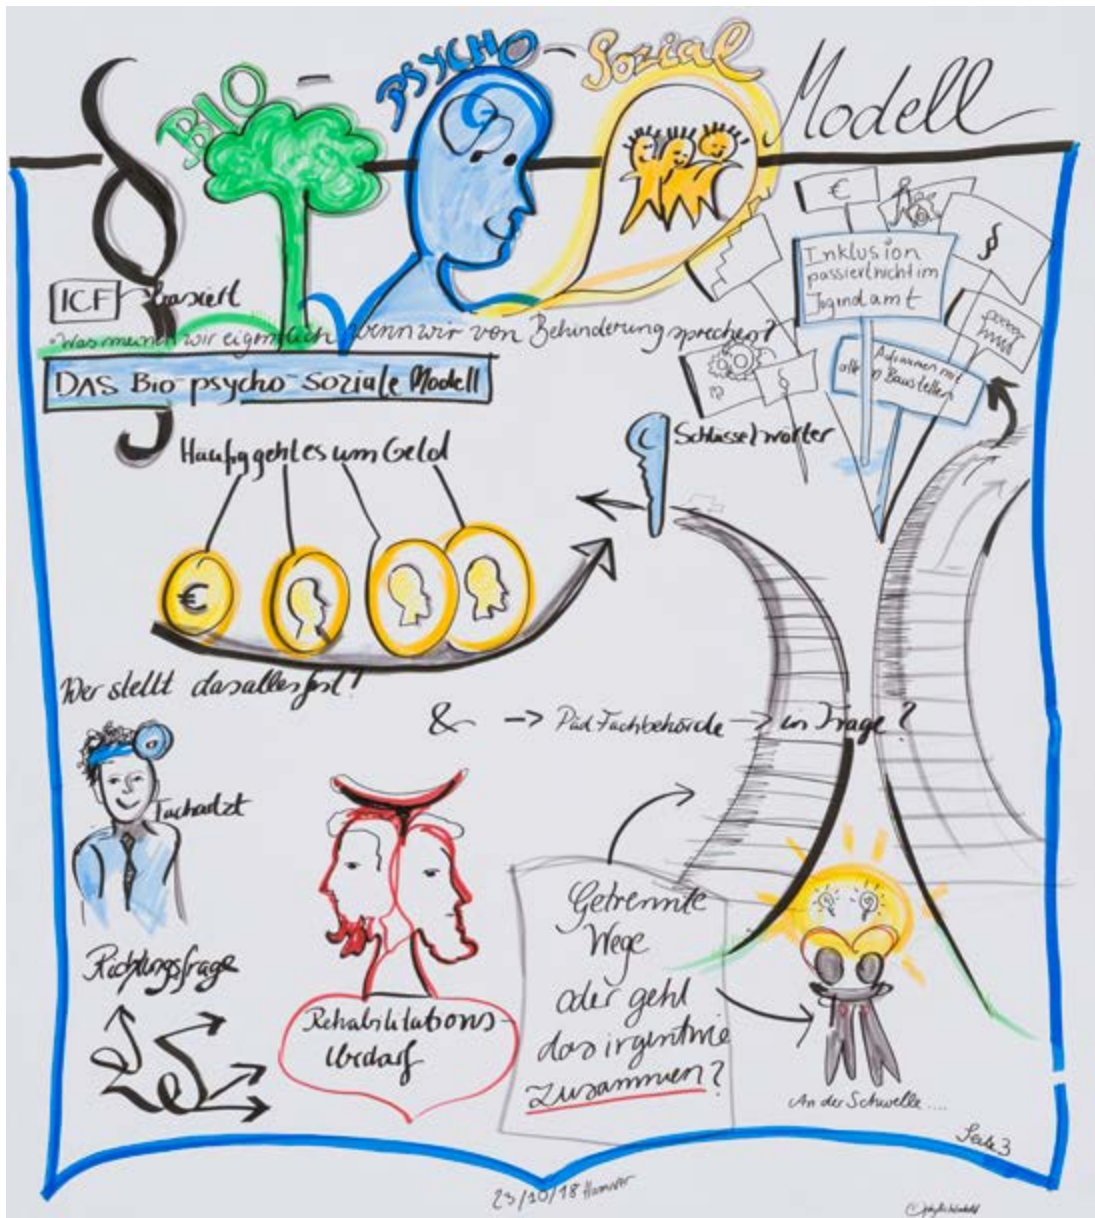 BIO - PSYCHO - Sozial Modell
ICF basiert
Was meinen wir eigentlich, wenn wir von Behinderung sprechen?
DAS Bio-psycho-Soziale Modell
€
§
Inklusion
passiert nicht im
Jugendamt
§
Aufräumen mit
allen Baustellen
Schlüsselwörter
Häufig geht es um Geld
€
Wer stellt das alles fest?
& -> Päd Fachbehörde -> in Frage?
Facharzt
Richtungsfrage
Rehabilitations-
bedarf
Getrennte
Wege
oder geht
das irgentwie
zusammen?
An der Schwelle....
Seite 3
23/10/18 Hannover